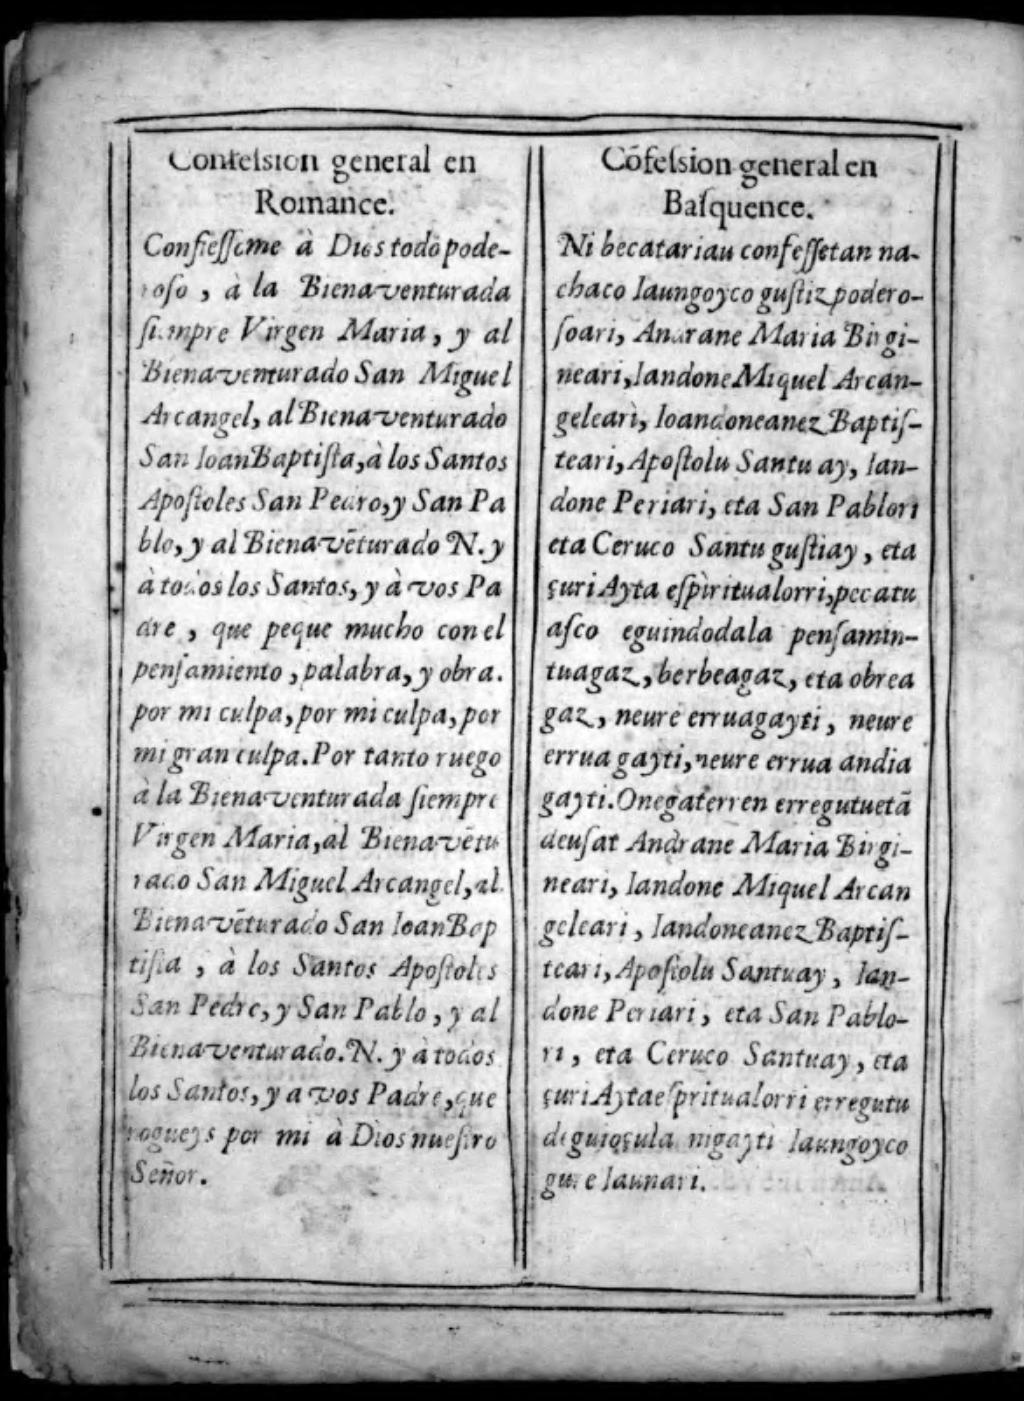 Confeſsion general en
Romance.
Confieſſome à Dios todo pode-
roſo, à la Bienaventurada
ſiempre Virgen Maria, y al
Bienaventurado San Miguel
Arcangel, al Bienaventurado
San Ioan Baptiſta, à los Santos
Apoſtoles San Pedro, y San Pa
blo, y al Bienavẽturado N. y
à todos los Santos, y à vos Pa
dre, que peque mucho con el
penſamiento, palabra, y obra.
por mi culpa, por mi culpa, por
mi gran culpa. Por tanto ruego
à la Bienaventurada ſiempre
Virgen Maria, al Bienavẽtu
rado San Miguel Arcangel, al
Bienavẽturado San Ioan Bap
tiſta, à los Santos Apoſtoles
San Pedro, y San Pablo, y al
Bienaventurado. N. y à todos
los Santos, y a vos Padre, que
rogueys por mi à Dios nueſtro
Señor.
Cõfeſsion general en
Baſquence.
Ni becatariau confeſſetan na-
chaco Iaungoyco guſtiz podero-
ſoari, Andrane Maria Birgi-
neari, Iandone Miquel Arcan-
geleari, Ioandoneanez Baptiſ-
teari, Apoſtolu Santu ay, Ian-
done Periari, eta San Pablori
eta Ceruco Santu guſtiay, eta
çuri Ayta eſpiritualorri, pecatu
aſco eguindodala penſamin-
tuagaz, berbeagaz, eta obrea
gaz, neure erruagayti, neure
errua gayti, neure errua andia
gayti. Onegaterren erregutuetã
deuſat Andrane Maria Birgi-
neari, Iandone Miquel Arcan
geleari, Iandoneanez Baptiſ-
teari, Apoſtolu Santuay, Ian-
done Periari, eta San Pablo-
ri, eta Ceruco Santuay, eta
çuri Ayta eſpritualorri erregutu
deguioçula nigayti Iaungoyco
gure Iaunari.